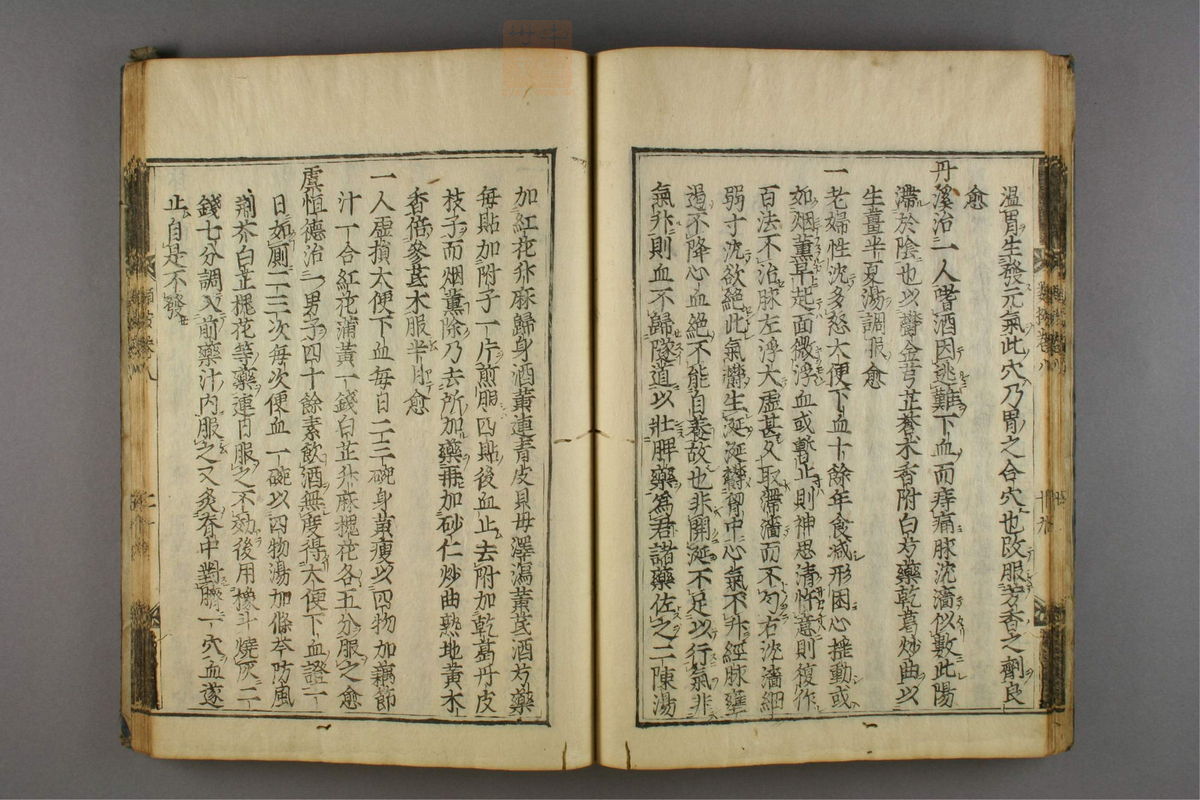 温胃生發元氣此穴乃胃之合穴也改服芳香之劑良
愈
丹溪治一人嗜酒因逃難下血而痔痛脉沈濇似數此陽
滯於陰也以欝金芎芷蒼朮香附白芍藥乾葛炒曲以
生薑半夏湯調服愈
一老婦性沈多怒大便下血十餘年食減形困心揺動或
如烟薫早起面微浮血或暫止則神思清忤意則復作
百法不治脉左浮大虚甚久取滯濇而不匀右沈濇細
弱寸沈欲絶此氣欝生涎涎欝胷中心氣不升經脉壅
遏不降心血絶不能自養故也非開涎不足以行氣非
氣升則血不歸隧道以壯脾藥爲君諸藥佐之二陳湯
加紅花升麻歸身酒黄連青皮貝母澤瀉黄芪酒芍藥
毎貼加附子一片煎服四貼後血止去附加乾葛丹皮
枝子而烟薫除乃去所加藥再加砂仁炒曲熟地黄木
香倍參芪朮服半月愈
一人虚損大便下血毎日二三碗身黄痩以四物加藕節
汁一合紅花蒲黄一錢白芷升麻槐花各五分服之愈
虞恒德治一男子四十餘素飲酒無度得大便下血證一
日如厠二三次毎次便血一碗以四物湯加條芩防風
荊芥白芷槐花等藥連日服之不効後用橡斗燒灰二
錢七分調入前藥汁内服之又灸脊中對臍一穴血遂
止自是不發